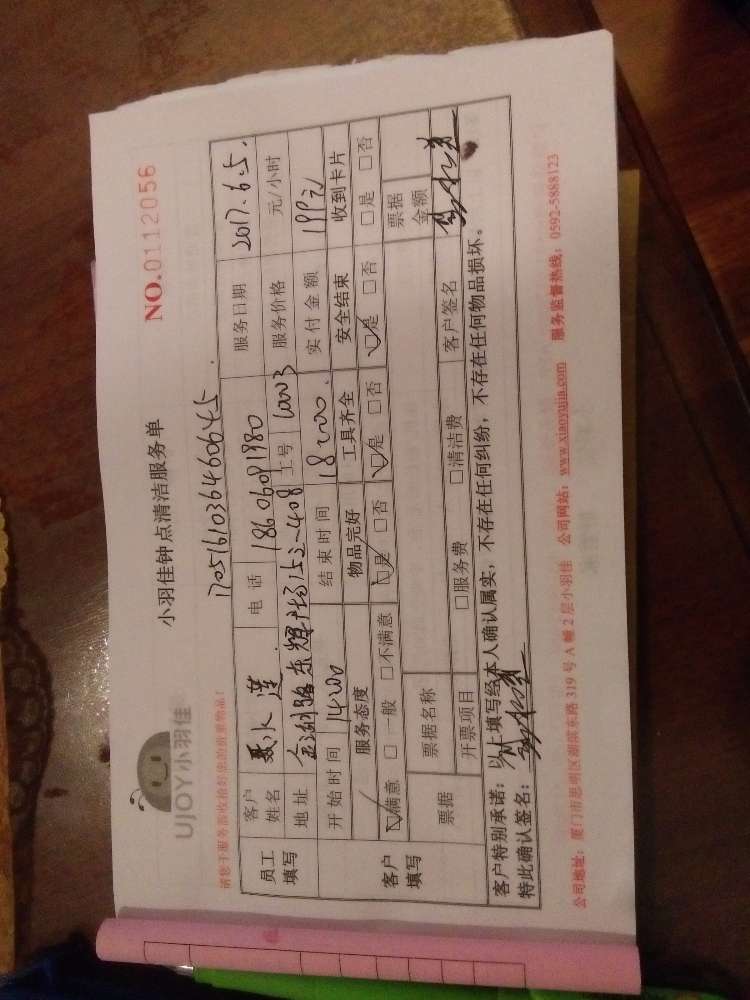 UJOY小羽佳
小羽佳钟点清洁服务单
NO.0112056
170516103646064 5
请您于服务前收拾好您的贵重物品!
员工填写 客户姓名 聂水莲 电话 18606091980 服务日期 2017.6.5.
地址 金湖路东辉广场 408 工号 服务价格 元/小时
开始时间 14:00 结束时间 18:00 实付金额 199元
客户填写 服务态度 物品完好 工具齐全 安全结束 收到卡片
☑满意 □一般 □不满意 ☑是 □否 ☑是 □否 ☑是 □否 □是 □否
票据 票据名称 票据金额
开票项目 □服务费 □清洁费 客户签名
客户特别承诺:以上填写经本人确认属实,不存在任何纠纷,不存在任何物品损坏。
特此确认签名:
公司地址:厦门市思明区湖滨东路319号A幢2层小羽佳 公司网站:www.xiaoyujia.com 服务监督热线:0592-5888123